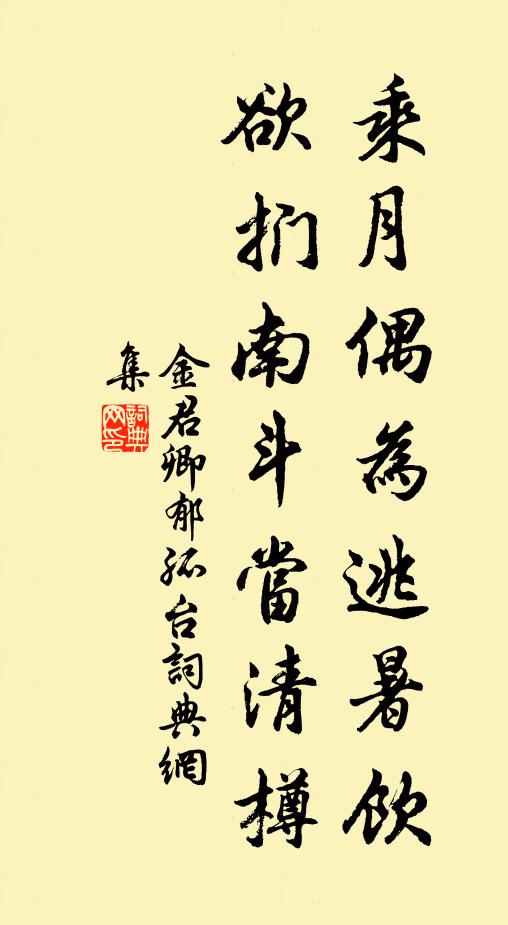 乘月偶為逃暑飲
欲捫南斗當清樽
金君卿郁孤台詞典網
集
詞典網印